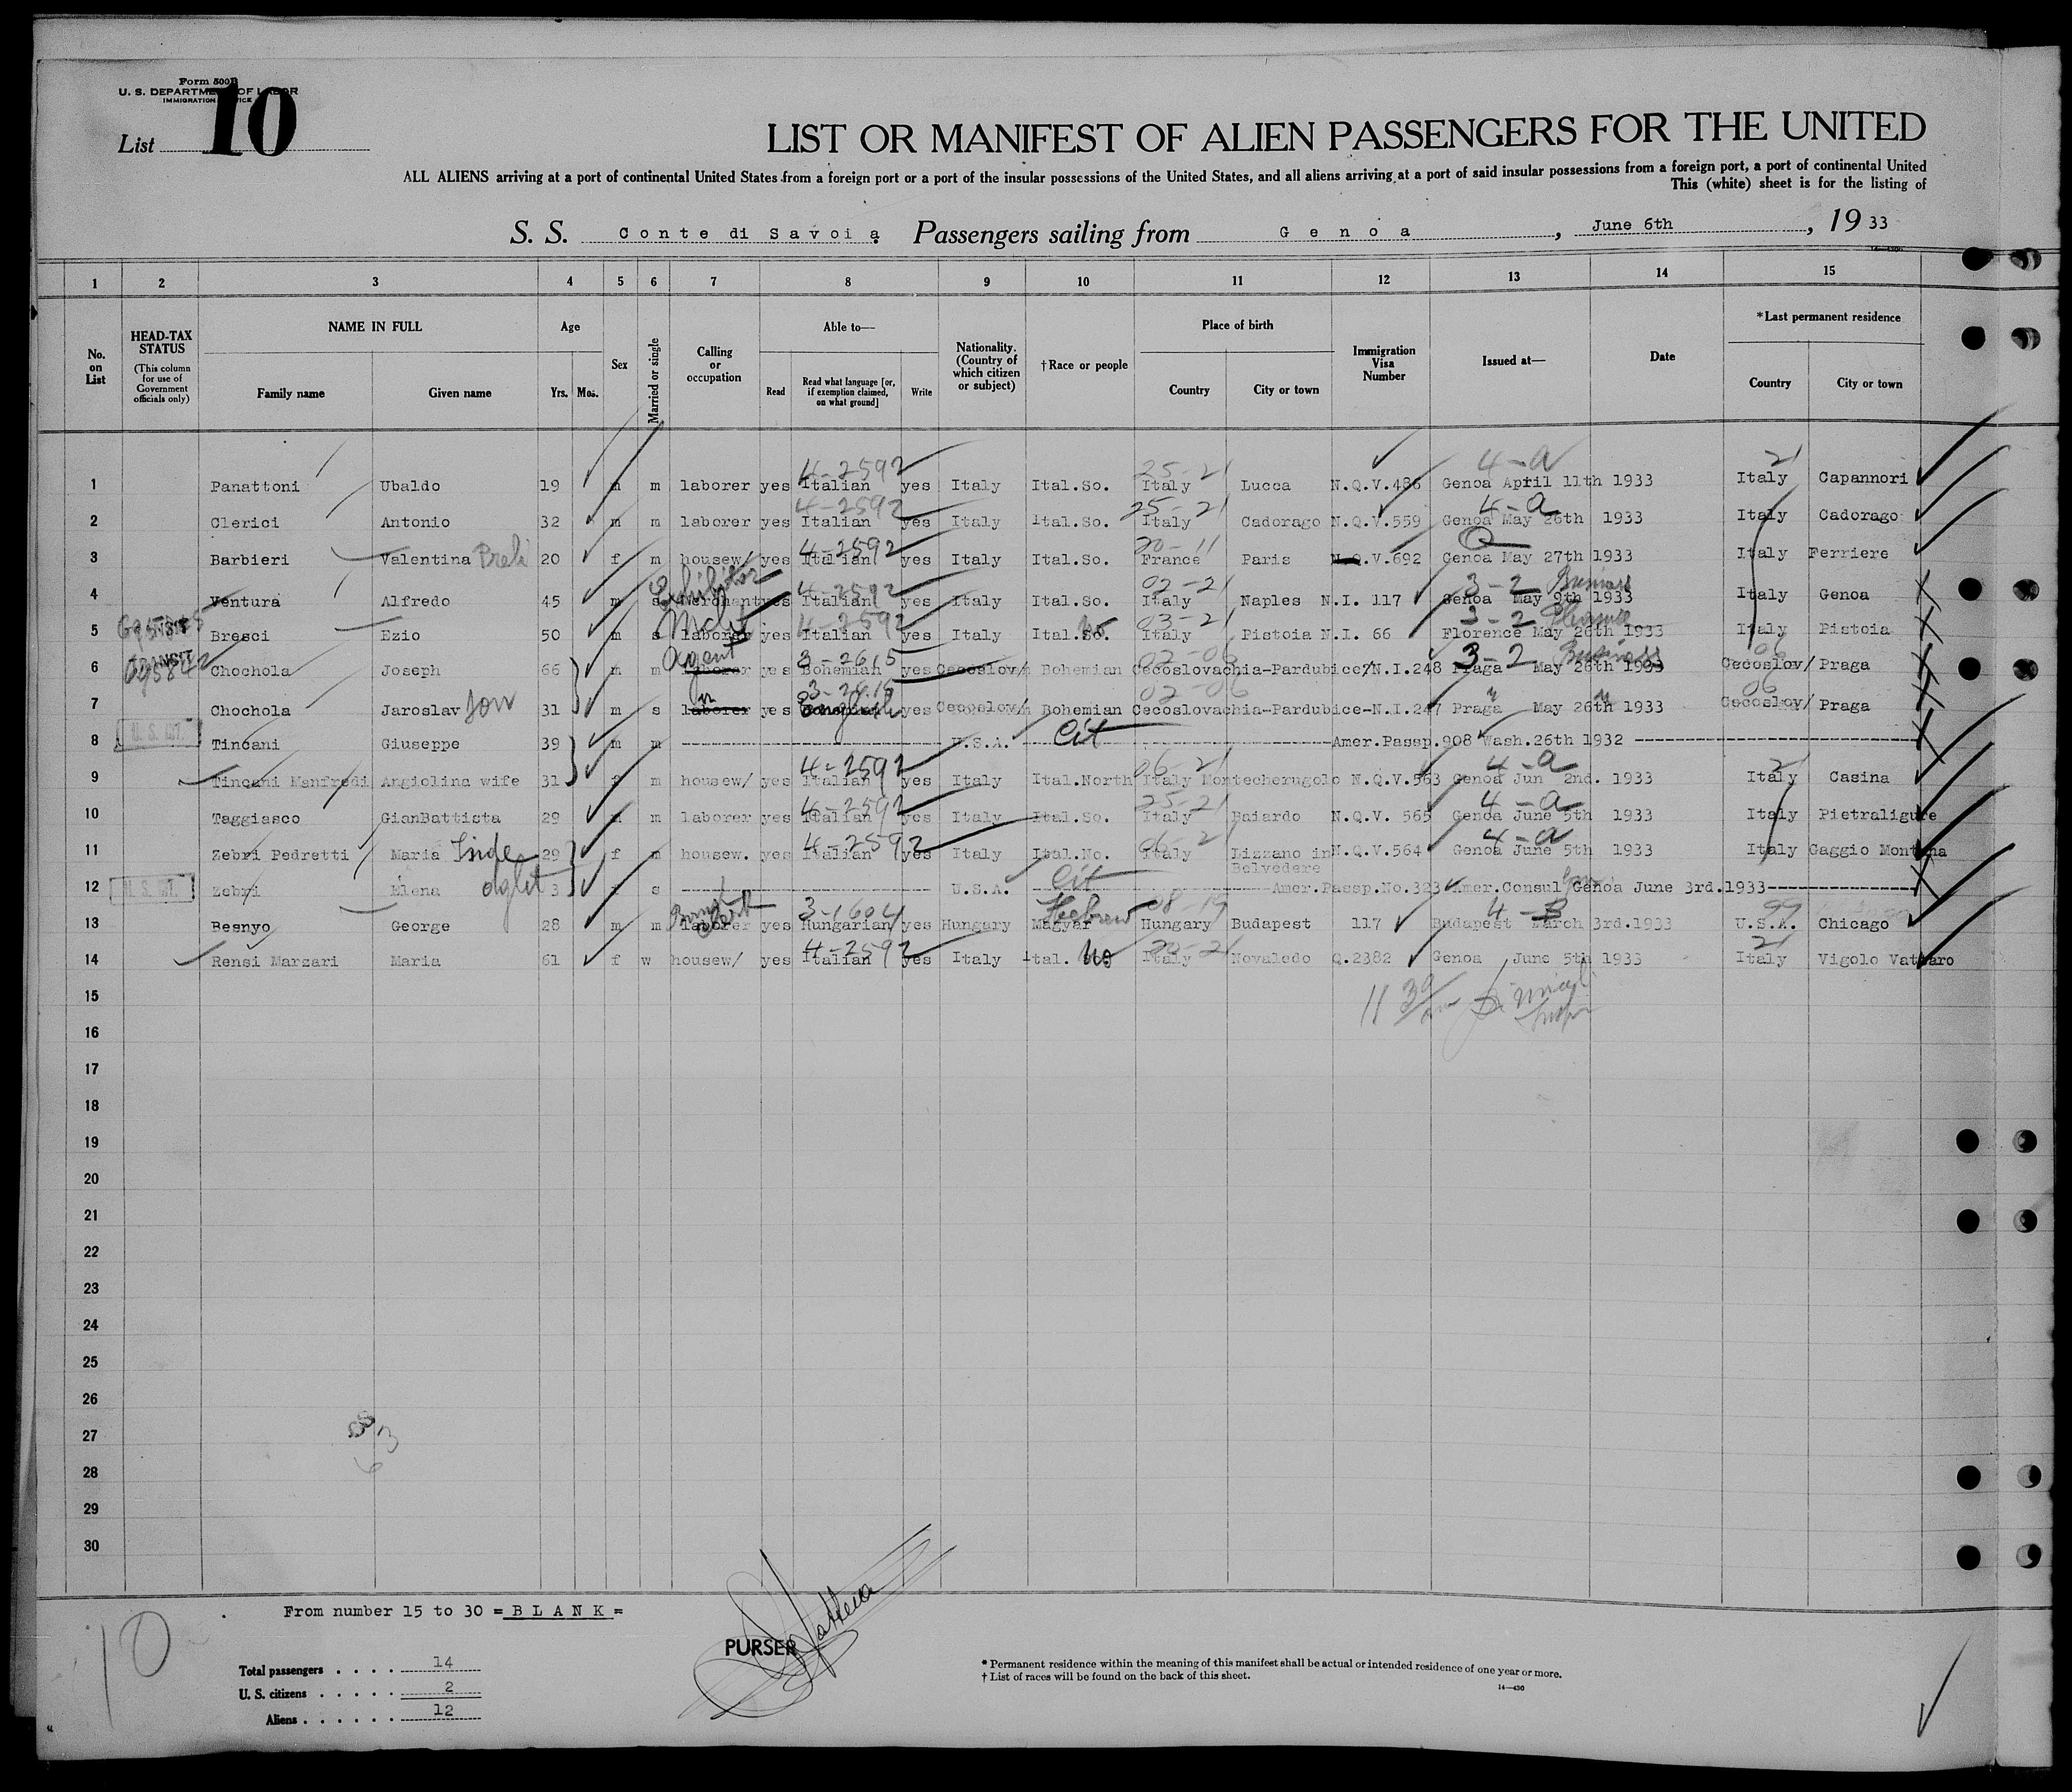 Form 500B
U. S. DEPARTMENT OF LABOR
IMMIGRATION SERVICE
List 10
LIST OR MANIFEST OF ALIEN PASSENGERS FOR THE UNITED
ALL ALIENS arriving at a port of continental United States from a foreign port or a port of the insular possessions of the United States, and all aliens arriving at a port of said insular possessions from a foreign port, a port of continental United
This (white) sheet is for the listing of
S. S. Conte di Savoia Passengers sailing from Genoa, June 6th, 1933
1 2 3 4 5 6 7 8 9 10 11 12 13 14 15
No. on List
HEAD-TAX STATUS (This column for use of Government officials only)
NAME IN FULL Family name Given name
Age Yrs. Mos.
Sex
Married or single
Calling or occupation
Able to— Read Read what language [or, if exemption claimed, on what ground] Write
Nationality. (Country of which citizen or subject)
†Race or people
Place of birth Country City or town
Immigration Visa Number
Issued at—
Date
*Last permanent residence Country City or town
4-2592 25-21 4-a 21
1 Panattoni Ubaldo 19 m m laborer yes Italian yes Italy Ital.So. Italy Lucca N.Q.V.486 Genoa April 11th 1933 Italy Capannori
4-2592 25-21 4-a
2 Clerici Antonio 32 m m laborer yes Italian yes Italy Ital.So. Italy Cadorago N.Q.V.559 Genoa May 26th 1933 Italy Cadorago
4-2592 20-11 Q
3 Barbieri Valentina 20 f m housew/ yes Italian yes Italy Ital.So. France Paris N.Q.V.692 Genoa May 27th 1933 Italy Ferriere
Exhibitor 4-2592 02-21 3-2 Business
4 Ventura Alfredo 45 m s merchant yes Italian yes Italy Ital.So. Italy Naples N.I. 117 Genoa May 9th 1933 Italy Genoa
Mcht 4-2592 03-21 3-2 Pleasure
5 Bresci Ezio 50 m s laborer yes Italian yes Italy Ital.So. No Italy Pistoia N.I. 66 Florence May 26th 1933 Italy Pistoia
TRANSIT Agent 3-2615 02-06 3-2 Business 06
6 Chochola Joseph 66 m m laborer yes Bohemian yes Cecoslov/ Bohemian Cecoslovachia-Pardubice/N.I.248 Praga May 26th 1933 Cecoslov/ Praga
3-2615 02-06 06
7 Chochola Jaroslav son 31 m s laborer yes English yes Cecoslov/ Bohemian Cecoslovachia-Pardubice-N.I.247 Praga May 26th 1933 Cecoslov/ Praga
U. S. CIT.
8 Tincani Giuseppe 39 m m U.S.A. Cit Amer.Passp.908 Wash.26th 1932
4-2592 06-21 4-a 21
9 Tincani Manfredi Angiolina wife 31 f m housew/ yes Italian yes Italy Ital.North Italy Montecherugolo N.Q.V.563 Genoa Jun 2nd. 1933 Italy Casina
4-2592 25-21 4-a
10 Taggiasco GianBattista 29 m m laborer yes Italian yes Italy Ital.So. Italy Baiardo N.Q.V. 565 Genoa June 5th 1933 Italy Pietraligure
4-2592 06-21 4-a
11 Zebri Pedretti Maria 29 f m housew. yes Italian yes Italy Ital.No. Italy Lizzano in Belvedere N.Q.V.564 Genoa June 5th 1933 Italy Gaggio Montana
U. S. CIT.
12 Zebri Elena 3 f s U.S.A. Cit Amer.Passp.No.323 Amer.Consul Genoa June 3rd.1933
Clerk 3-1604 Hebrew 08-19 4-B 99
13 Besnyo George 28 m m laborer yes Hungarian yes Hungary Magyar Hungary Budapest 117 Budapest March 3rd.1933 U.S.A. Chicago
4-2592 21
14 Rensi Marzari Maria 61 f w housew/ yes Italian yes Italy Ital. No Italy Novaledo Q.2382 Genoa June 5th 1933 Italy Vigolo Vattaro
15
16
17
18
19
20
21
22
23
24
25
26
27
28
29
30
From number 15 to 30 =BLANK=
10
PURSER
Total passengers . . . . 14
U. S. citizens . . . . . 2
Aliens . . . . . . 12
* Permanent residence within the meaning of this manifest shall be actual or intended residence of one year or more.
† List of races will be found on the back of this sheet.
14—430